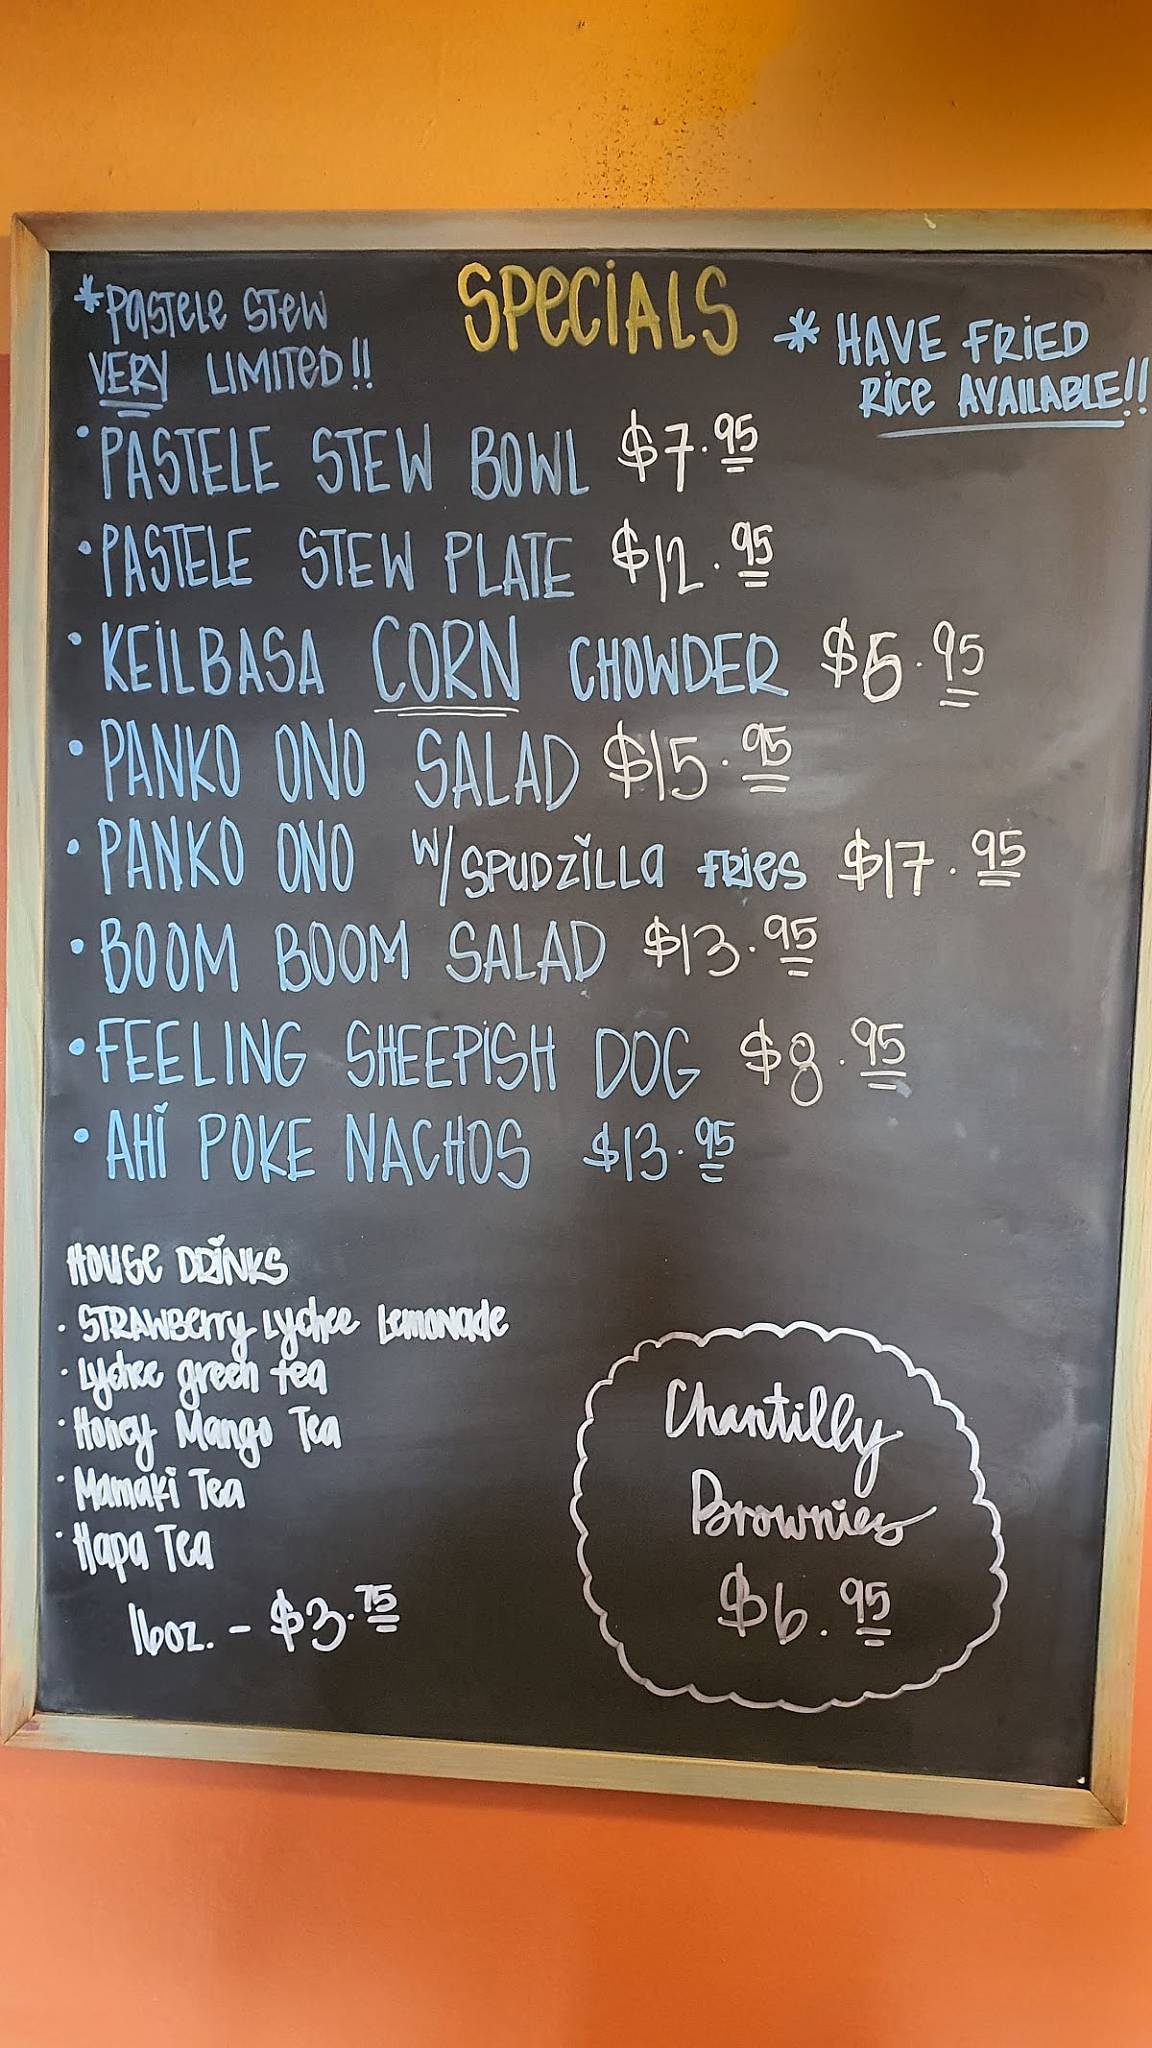 SPECIALS
*PASTELE STEW
VERY LIMITED!!
* HAVE FRIED
RICE AVAILABLE!!
• PASTELE STEW BOWL $7.95
• PASTELE STEW PLATE $12.95
• KEILBASA CORN CHOWDER $5.95
• PANKO ONO SALAD $15.95
• PANKO ONO W/SPUDZILLA FRIES $17.95
• BOOM BOOM SALAD $13.95
• FEELING SHEEPISH DOG $8.95
• AHI POKE NACHOS $13.95
HOUSE DRINKS
• STRAWBERRY Lychee Lemonade
• Lychee green tea
• Honey Mango Tea
• Mamaki Tea
• Hapa Tea
16oz. - $3.75
Chantilly
Brownies
$6.95